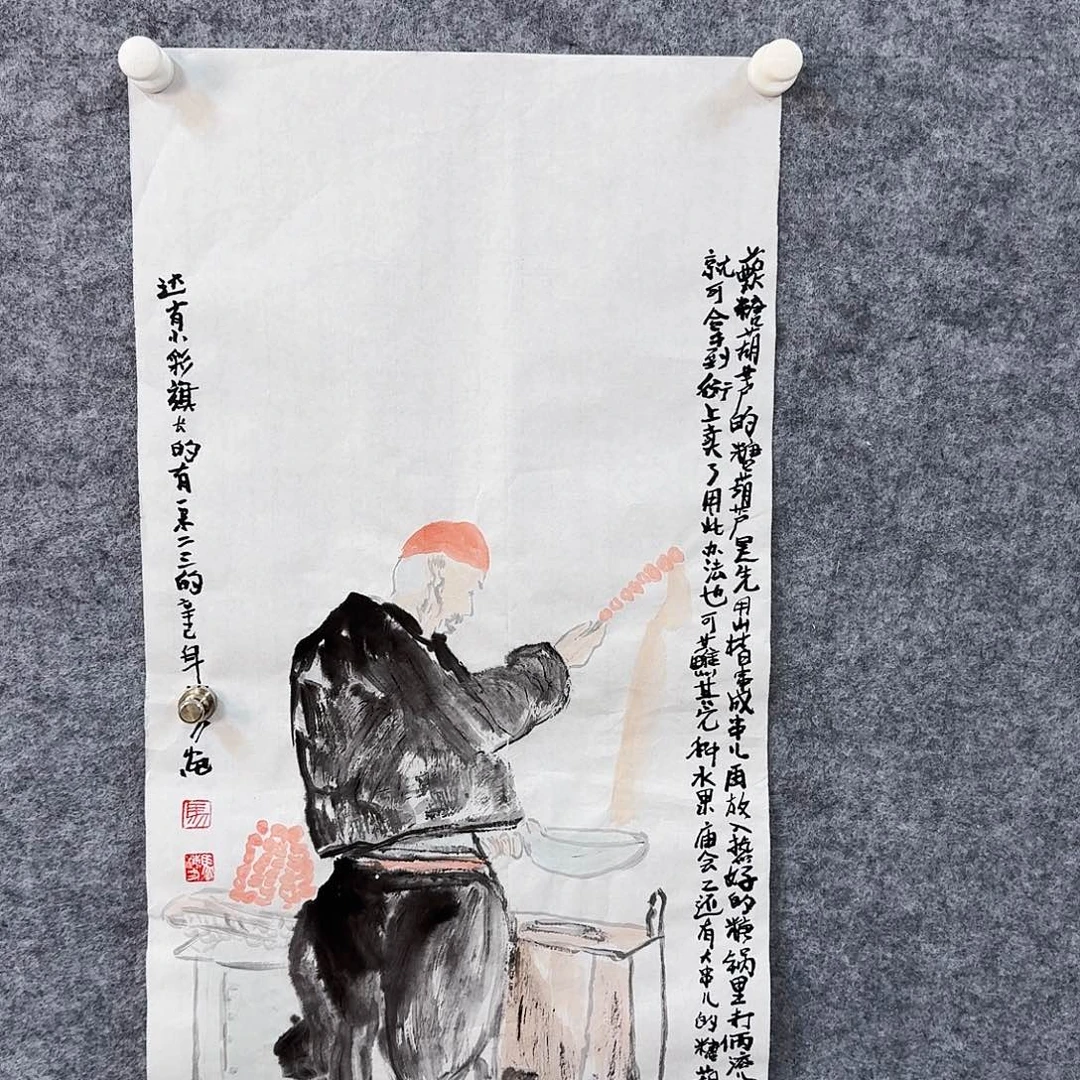 蘸糖葫芦的糖葫芦是先用山楂串成串儿再放入熬好的糖锅里打俩滚儿
就可拿到街上卖了用此办法也可蘸其它料水果庙会上还有大串儿的糖葫
还有小彩旗长的有一米二三的辛巳年
马